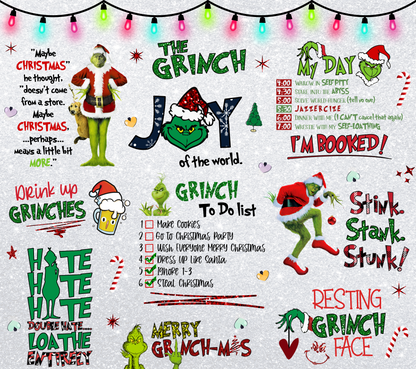 "Maybe
CHRISTMAS"
he thought.
"doesn't come
from a store.
Maybe
CHRISTMAS,
...perhaps...
means a little bit
MORE."
THE
GRINCH
JOY
of the world.
MY DAY
4:00 WALLOW IN SELF PITY
4:30 STARE INTO THE ABYSS
5:00 SOLVE WORLD HUNGER (tell no one)
5:30 JAZZERCISE
6:30 DINNER WITH ME (I CAN'T cancel that again)
7:00 WRESTLE WITH MY SELF-LOATHING
I'M BOOKED!
Drink up
GRINCHES
GRINCH
To Do list
1 Make Cookies
2 Go to Christmas Party
3 Wish Everyone Merry Christmas
4 Dress Up Like Santa
5 Ignore 1-3
6 Steal Christmas
Stink.
Stank.
Stunk!
HATE
HATE
HATE
DOUBLE HATE
LOATHE
ENTIRELY
MERRY
GRINCH-MAS
RESTING
GRINCH
FACE